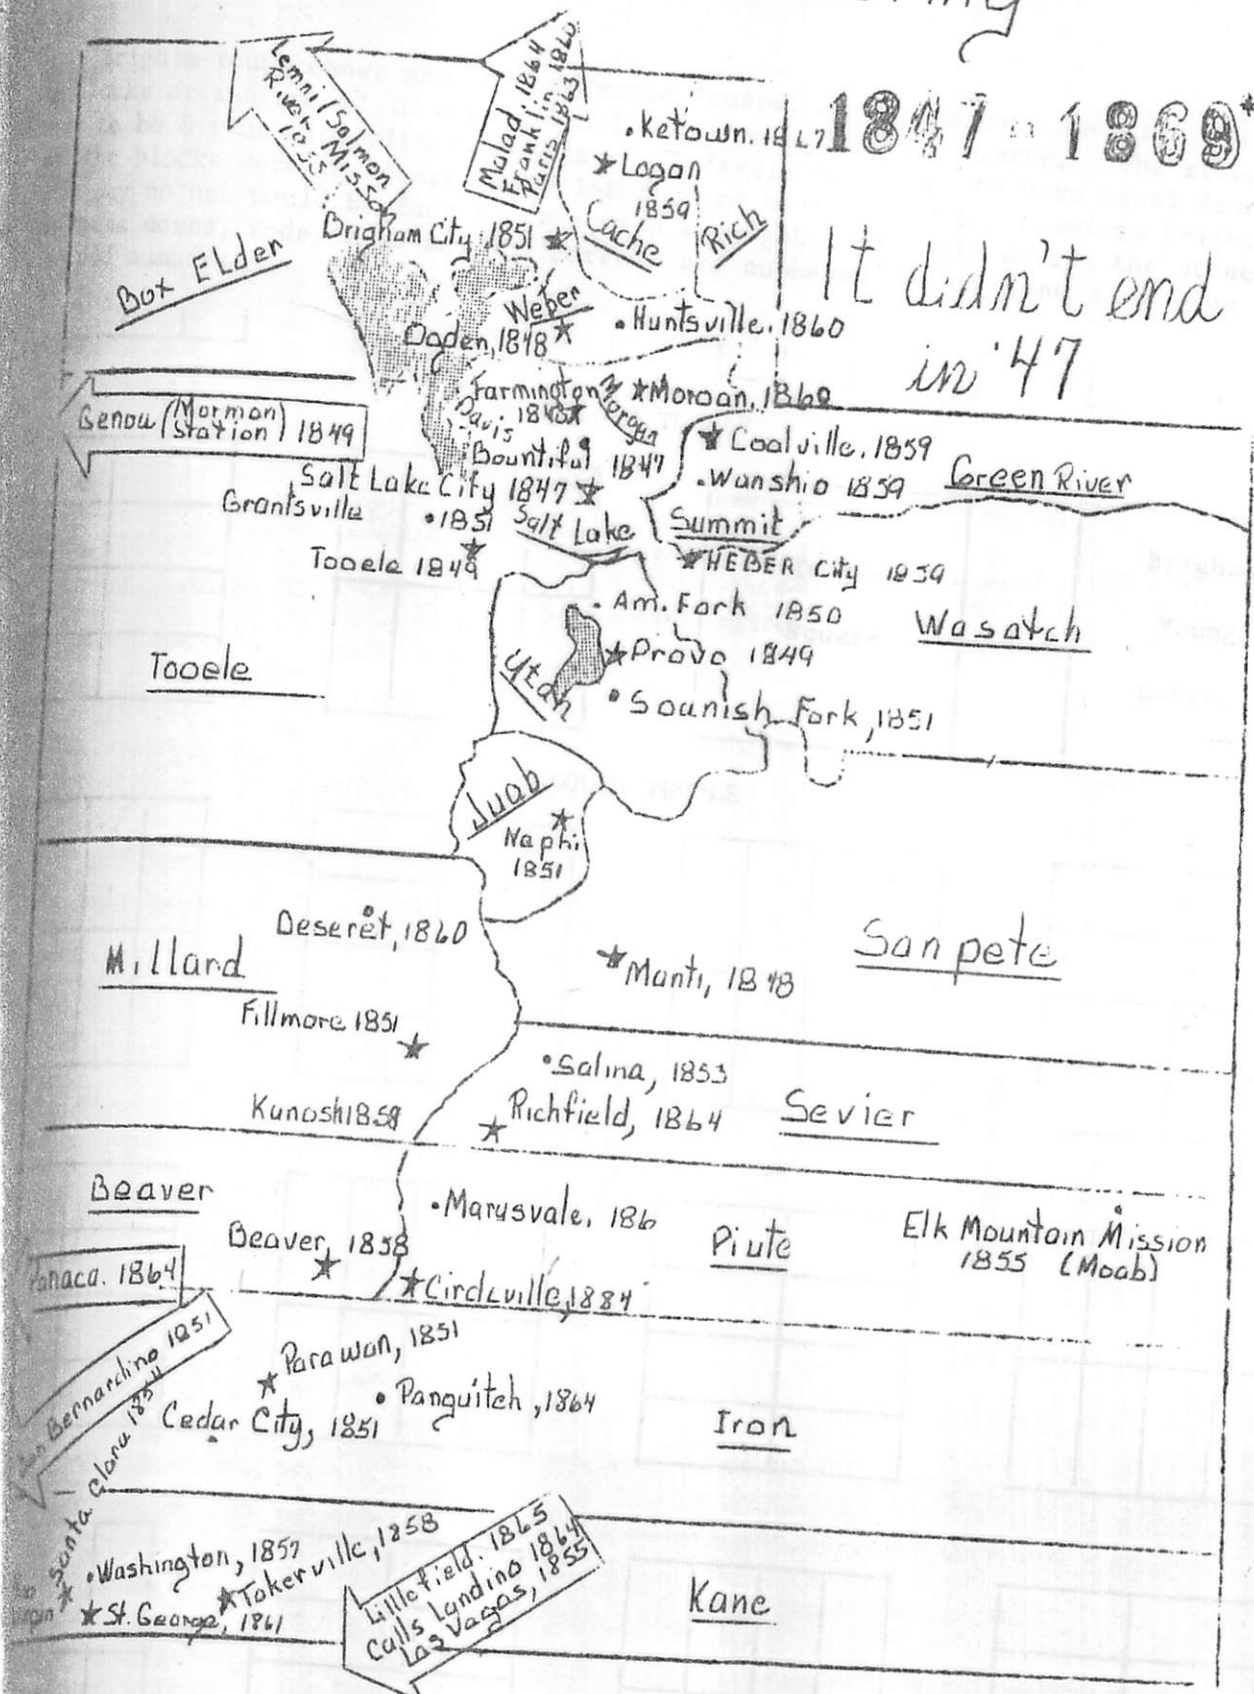 1847 - 1869*
It didn't end
in '47
Lemhi/Salmon
River Misson
1855
Malad 1864
Franklin 1860
Paris 1863
Ketown. 1867
Logan
1859
Cache
Rich
Brigham City, 1851
Box Elder
Weber
Huntsville. 1860
Ogden, 1848
Farmington
1848
Davis
Morgan
Morgan, 1860
Genoa (Mormon Station) 1849
Bountiful 1847
Coalville. 1859
Wanship 1859
Green River
Salt Lake City 1847
Grantsville
1851
Salt Lake
Summit
Tooele 1849
HEBER City 1859
Am. Fork 1850
Wasatch
Provo 1849
Tooele
Utah
Spanish Fork, 1851
Juab
Nephi
1851
Deseret, 1860
Millard
Sanpete
Manti, 1848
Fillmore 1851
Salina, 1853
Kanosh 1859
Richfield, 1864
Sevier
Beaver
Marysvale. 186
Piute
Elk Mountain Mission
1855 (Moab)
Beaver, 1858
Panaca. 1864
Circleville, 1884
San Bernardino 1851
Parawan, 1851
Panguitch, 1864
Cedar City, 1851
Iron
Santa Clara 1854
Washington, 1857
Tokerville, 1858
St. George, 1861
Littlefield. 1865
Calls Landing 1864
Las Vagas, 1855
Kane